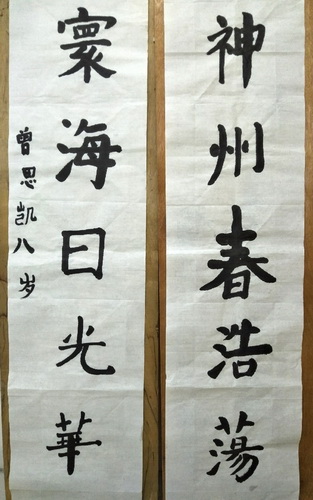 神州春浩蕩
寰海日光華
曾思凯八岁